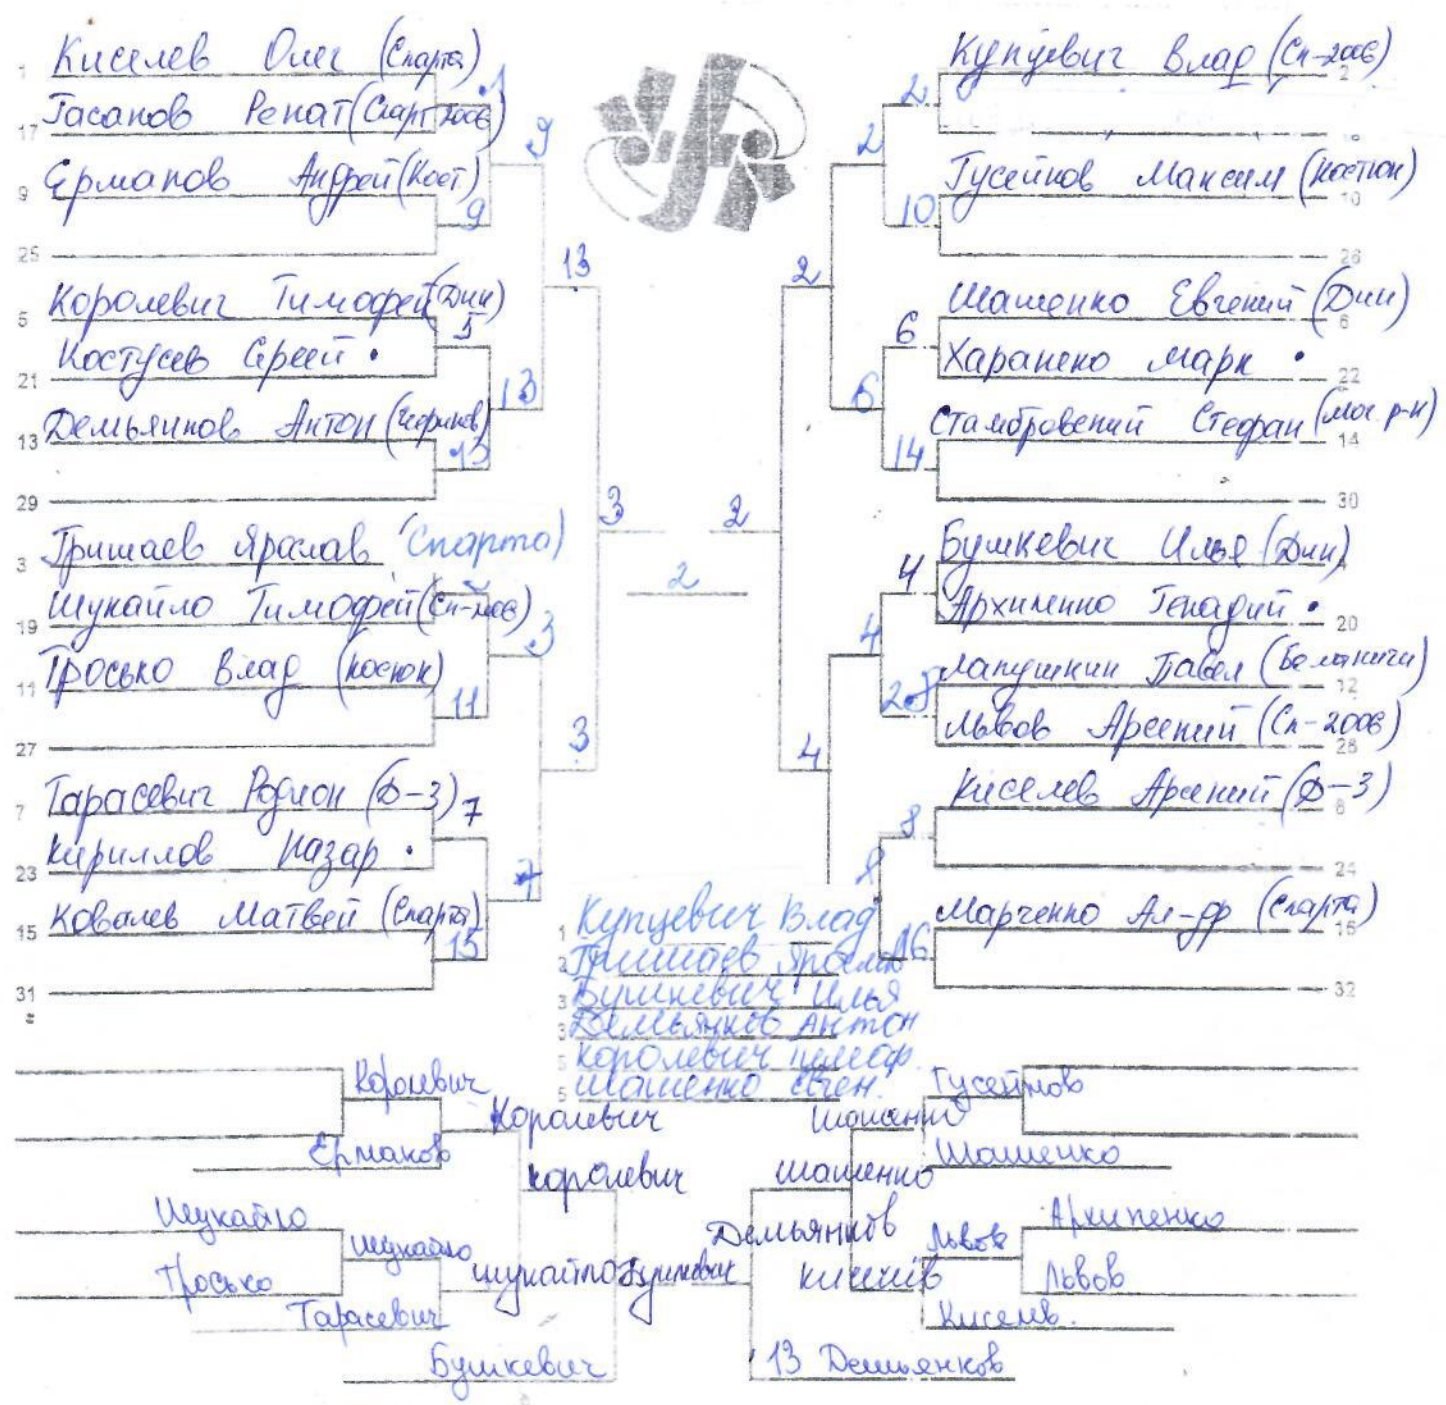 Киселев Олег (Спарта)
1
Гасанов Ренат (Спарт 2006)
17
1
9
Ермаков Андрей (Кост)
9
9
25
13
Королевич Тимофей (Дин)
5
5
Костусев Сергей
21
13
Демьянков Антон (Чериков)
13
13
29
3
Гришаев Ярослав (Спарта)
3
Шукайло Тимофей (Сп-2006)
19
3
Тросько Влад (Костюк)
11
11
27
3
Тарасевич Родион (Д-3)
7
7
Кириллов Назар
23
7
Ковалев Матвей (Спарта)
15
15
31
Купцевич Влад (Сп-2006)
2
2
18
2
Гусейнов Максим (Костюк)
10
10
26
2
Шашенко Евгений (Дин)
6
6
Харанеко Марк
22
6
Стамбровский Стефан (Мог. р-н)
14
14
30
2
2
Бушкевич Илья (Дин)
4
4
Архипенко Генадий
20
4
Лапушкин Павел (Белыничи)
12
28
Львов Арсений (Сп-2006)
28
4
Киселев Арсений (Д-3)
8
8
24
8
Марченко Ал-др (Спарта)
16
16
32
1 Купцевич Влад
2 Гришаев Ярослав
3 Бушкевич Илья
3 Демьянков Антон
5 Королевич Тимоф.
5 Шашенко Евген.
Королевич
Ермаков
Королевич
Королевич
Шукайло
Тросько
Шукайло
Тарасевич
Шукайло
Бушкевич
Бушкевич
Гусейнов
Шашенко
Шашенко
Шашенко
Демьянков
Архипенко
Львов
Львов
Киселев.
Киселев
13 Демьянков